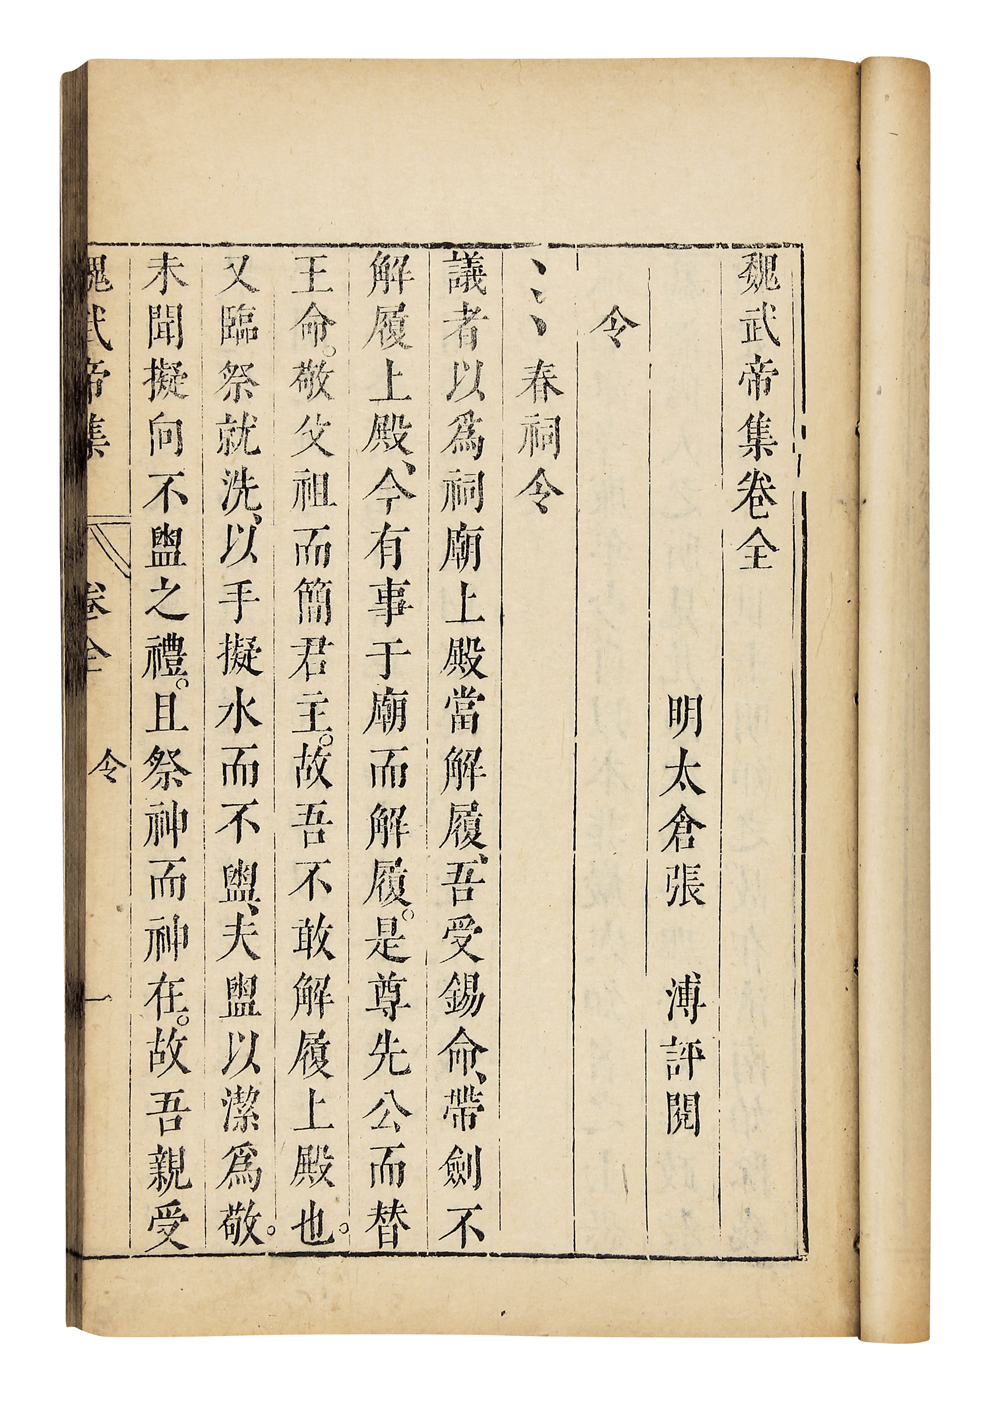 魏武帝集卷全
明太倉張　溥評閱
令
春祠令
議者以爲祠廟上殿當解履、吾受錫命、帶劍不
解履上殿、今有事于廟而解履。是尊先公而替
王命。敬父祖而簡君主。故吾不敢解履上殿也。
又臨祭就洗、以手擬水而不盥、夫盥以潔爲敬。
未聞擬向不盥之禮。且祭神而神在。故吾親受
魏武帝集　卷全　令　一